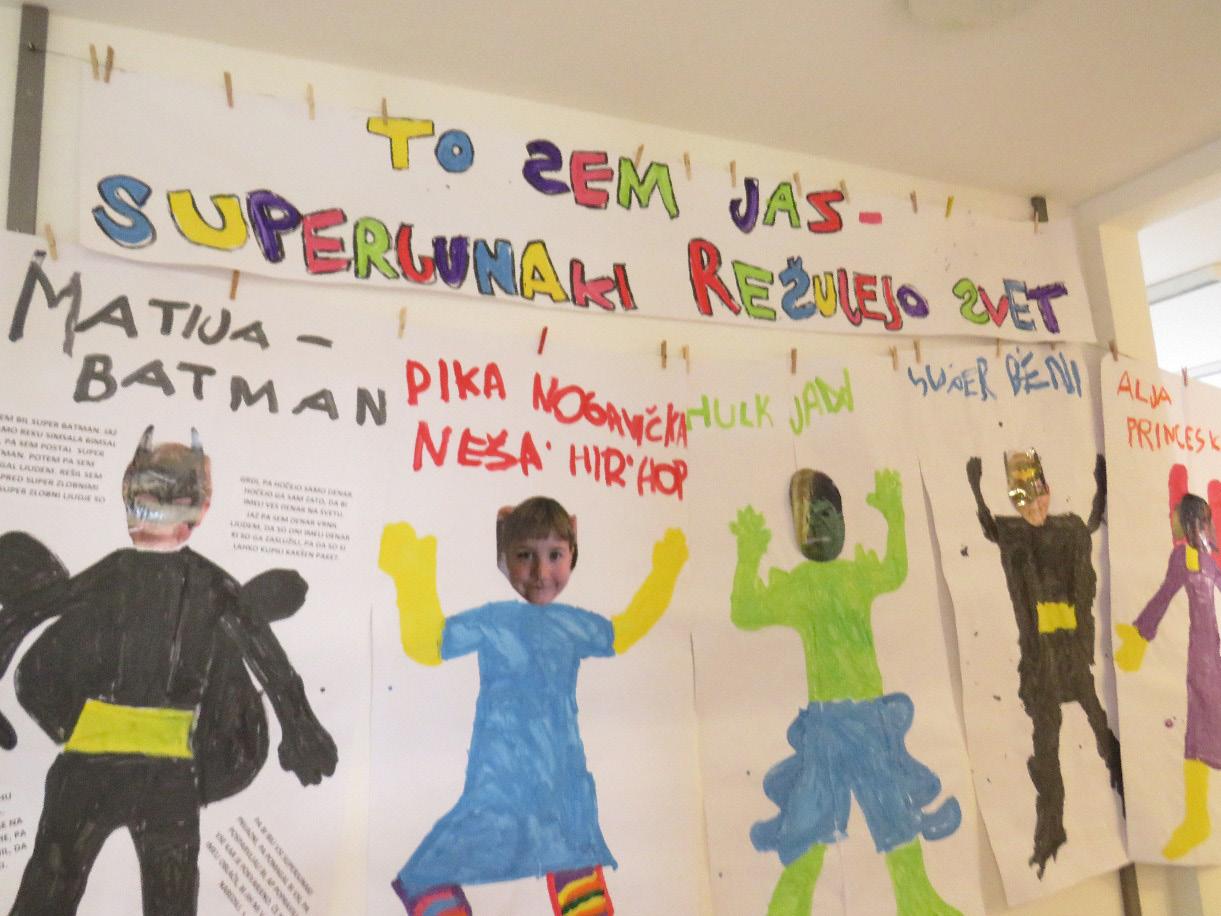 TO SEM JAS-
SUPERGUNAKI REŽULEJO SVET
MATIJA-
BATMAN
PIKA NOGAVIČKA
NEŠA HIP HOP
HULK JADV
SUPER BENI
ALJA
PRINCESK
EM BIL SUPER BATMAN. JAZ
EMO REKU SIMSALA BIMSAL
, PA SEM POSTAL SUPER
TMAN. POTEM PA SEM
GAL LJUDEM. REŠIL SEM
PRED SUPER ZLOBNIMI
SUPER ZLOBNI LJUDJE SO
GRDI, PA HOČEJO SAMO DENAR
HOČEJO GA SAM ZATO, DA BI
IMELI VES DENAR NA SVETU.
JAZ PA SEM DENAR VRNIL
LJUDEM, DA SO ONI IMELI DENAR
KI SO GA ZASLUŽILI, PA DA SO SI
LAHKO KUPILI KAKŠEN PAKET.